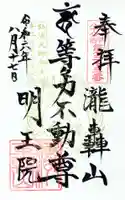 奉拝
瀧轟山
等身不動尊
明王院
令和六年
八月十二日